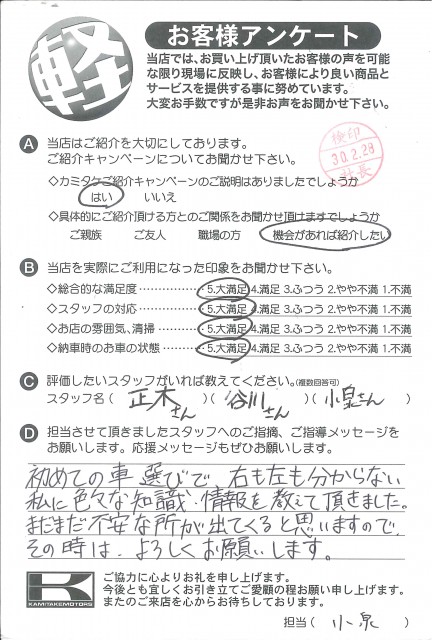 軽
お客様アンケート
当店では、お買い上げ頂いたお客様の声を可能
な限り現場に反映し、お客様により良い商品と
サービスを提供する事に努めています。
大変お手数ですが是非お声をお聞かせ下さい。
A 当店はご紹介を大切にしております。
ご紹介キャンペーンについてお聞かせ下さい。
検印
30.2.28
社長
◇カミタケご紹介キャンペーンのご説明はありましたでしょうか
はい いいえ
◇具体的にご紹介頂ける方とのご関係をお聞かせ頂けますでしょうか
ご親族 ご友人 職場の方 機会があれば紹介したい
B 当店を実際にご利用になった印象をお聞かせ下さい。
◇総合的な満足度………………5.大満足 4.満足 3.ふつう 2.やや不満 1.不満
◇スタッフの対応………………5.大満足 4.満足 3.ふつう 2.やや不満 1.不満
◇お店の雰囲気、清掃…………5.大満足 4.満足 3.ふつう 2.やや不満 1.不満
◇納車時のお車の状態…………5.大満足 4.満足 3.ふつう 2.やや不満 1.不満
C 評価したいスタッフがいれば教えてください。(複数回答可)
スタッフ名(正木さん)(谷川さん)(小泉さん)
D 担当させて頂きましたスタッフへのご指摘、ご指導メッセージを
お願いします。応援メッセージもぜひお願いします。
初めての車選びで、右も左も分からない
私に色々な知識・情報を教えて頂きました。
まだまだ不安な所が出てくると思いますので、
その時は、よろしくお願いします。
K
KAMITAKEMOTORS
ご協力に心よりお礼を申し上げます。
今後とも宜しくお引き立てご愛顧の程お願い申し上げます。
またのご来店を心からお待ちしております。
担当(小泉)